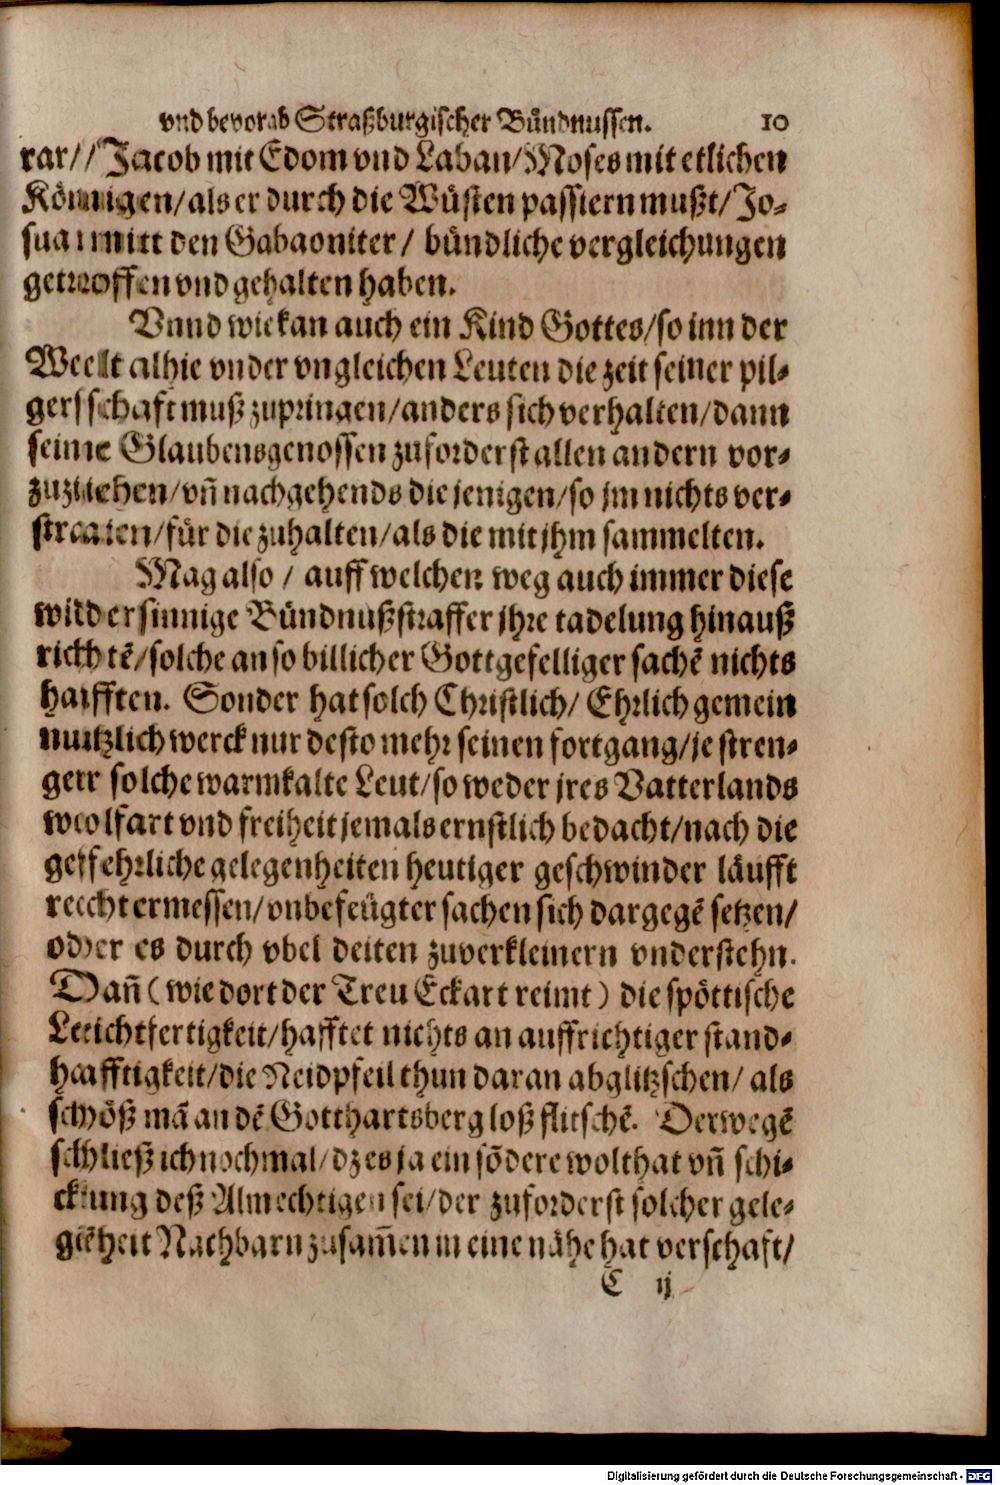 vnd bevorab Straßburgischer Bündnussen. 10
rar/ Jacob mit Edom vnd Laban/ Moses mit etlichen
Königen/ als er durch die Wüsten passiern mußt/ Jo-
sua mitt den Gabaoniter/ bündliche vergleichungen
getroffen vnd gehalten haben.
Vnnd wie kan auch ein Kind Gottes/ so inn der
Welt alhie vnder vngleichen Leuten die zeit seiner pil-
gerschaft muß zupringen/ anders sich verhalten/ dann
seine Glaubensgenossen zuforderst allen andern vor-
zuziehen/ vñ nachgehends die jenigen/ so jm nichts ver-
streaien/ für die zuhalten/ als die mit jhm sammelten.
Mag also / auff welchen weg auch immer diese
widersinnige Bündnußstraffer jhre tadelung hinauß
richtẽ/ solche an so billicher Gottgefelliger sachẽ nichts
hafften. Sonder hat solch Christlich/ Ehrlich gemein
nützlich werck nur desto mehr seinen fortgang/ je stren-
ger solche warmkalte Leut/ so weder jres Vatterlands
wolfart vnd freiheit jemals ernstlich bedacht/ nach die
gefehrliche gelegenheiten heutiger geschwinder läufft
recht ermessen/ vnbefeügter sachen sich dargegẽ setzen/
oder es durch vbel deiten zuverkleinern vnderstehn.
Dañ (wie dort der Treu Eckart reimt) die spöttische
Leichtfertigkeit/ hafftet nichts an auffrichtiger stand-
hafftigkeit/ die Neidpfeil thun daran abglitzschen/ als
schöß mã an dẽ Gotthartsberg loß flitschẽ. Derwegẽ
schließ ich nochmal/ dz es ja ein sõdere wolthat vñ schi-
ckung deß Almechtigen sei/ der zuforderst solcher gele-
gẽheit Nachbarn zusam̃en in eine nähe hat verschaft/
C ij
Digitalisierung gefördert durch die Deutsche Forschungsgemeinschaft - DFG